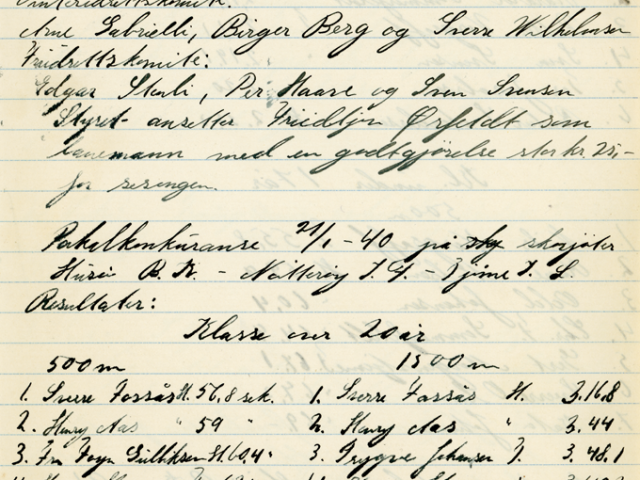 Vinteridrettskomite:
Arne Gabrielli, Birger Berg og Sverre Wilhelmsen
Friidrettskomite:
Edgar Stenli, Per Haave og Sven Svensen
Styret ansetter Friedtjen Ørfeldt som
banemann med en godtgjørelse stor kr. 25,-
for sesongen.
Pokalkonkuranse 21/1 - 40 på skøjter
Husøi B. K. - Nøtterøy I. F. - Tjøme I. L.
Resultater:
Klasse over 20 år
500 m 1500 m
1. Sverre Fossås H. 56,8 sek. 1. Sverre Fossås H. 3.16,8
2. Henry Aas " 59 " 2. Henry Aas " 3.44
3. Foyn Gulliksen H. 60,4 " 3. Trygve Johansen T. 3.48,1